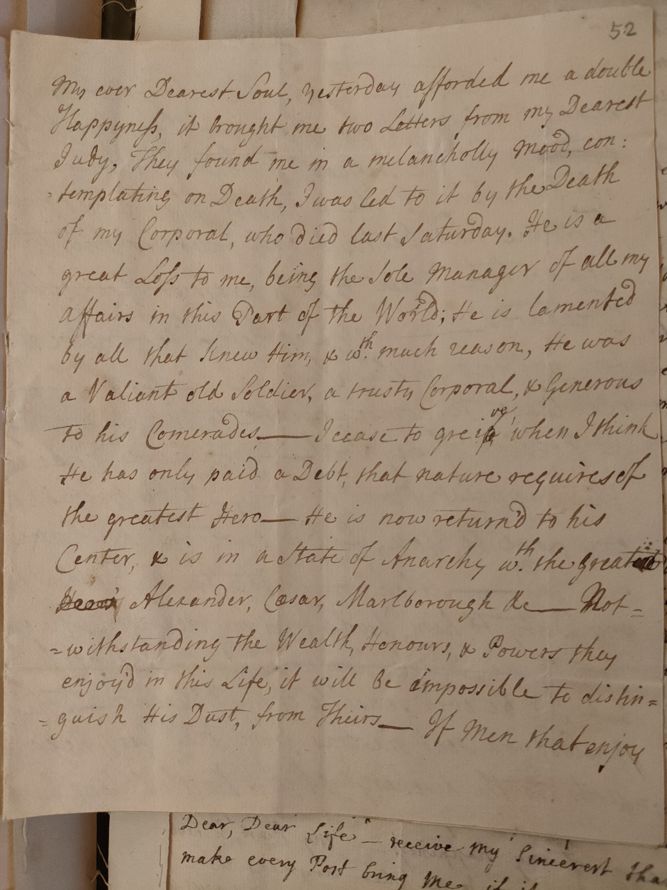 52
My ever Dearest Soul, yesterday afforded me a double
Happyness, it brought me two Letters from my Dearest
Judy, They found me in a melancholly Mood, con:
=templating on Death, I was led to it by the Death
of my Corporal, who died last Saturday. He is a
great Loss to me, being the Sole Manager of all my
affairs in this Part of the World; He is lamented
by all that knew Him, & wth. much reason, He was
a Valiant old Soldier, a trusty Corporal, & Generous
to his Comerades — I cease to greive when I think
He has only paid a Debt, that nature requires of
the greatest Hero — He is now return'd to his
Center, & is in a State of Anarchy wth. the great
Alexander, Cæsar, Marlborough &c — Not=
=withstanding the Wealth, Honours, & Powers they
enjoy'd in this Life, it will be impossible to distin=
=guish His Dust, from Theirs — If Men that enjoy
Dear, Dear Life — receive my Sincerest
make every Post bring Me